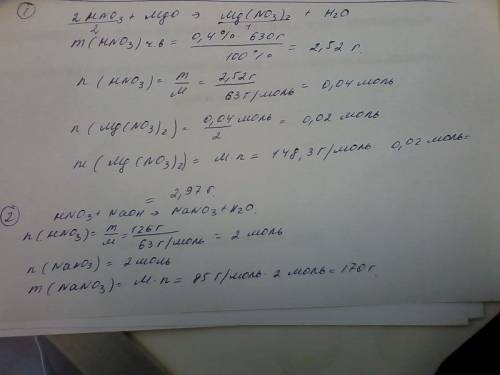 ① 2HNO3 + MgO → Mg(NO3)2 + H2O
2 1
m(HNO3)ч.в = 0,4% · 630г / 100% = 2,52 г.
n(HNO3) = m/M = 2,52г / 63 г/моль = 0,04 моль
n(Mg(NO3)2) = 0,04 моль / 2 = 0,02 моль
m(Mg(NO3)2) = M·n = 148,3 г/моль · 0,02 моль =
= 2,97 г.
② HNO3 + NaOH → NaNO3 + H2O.
n(HNO3) = m/M = 126г / 63 г/моль = 2 моль
n(NaNO3) = 2 моль
m(NaNO3) = M·n = 85 г/моль · 2 моль = 170 г.